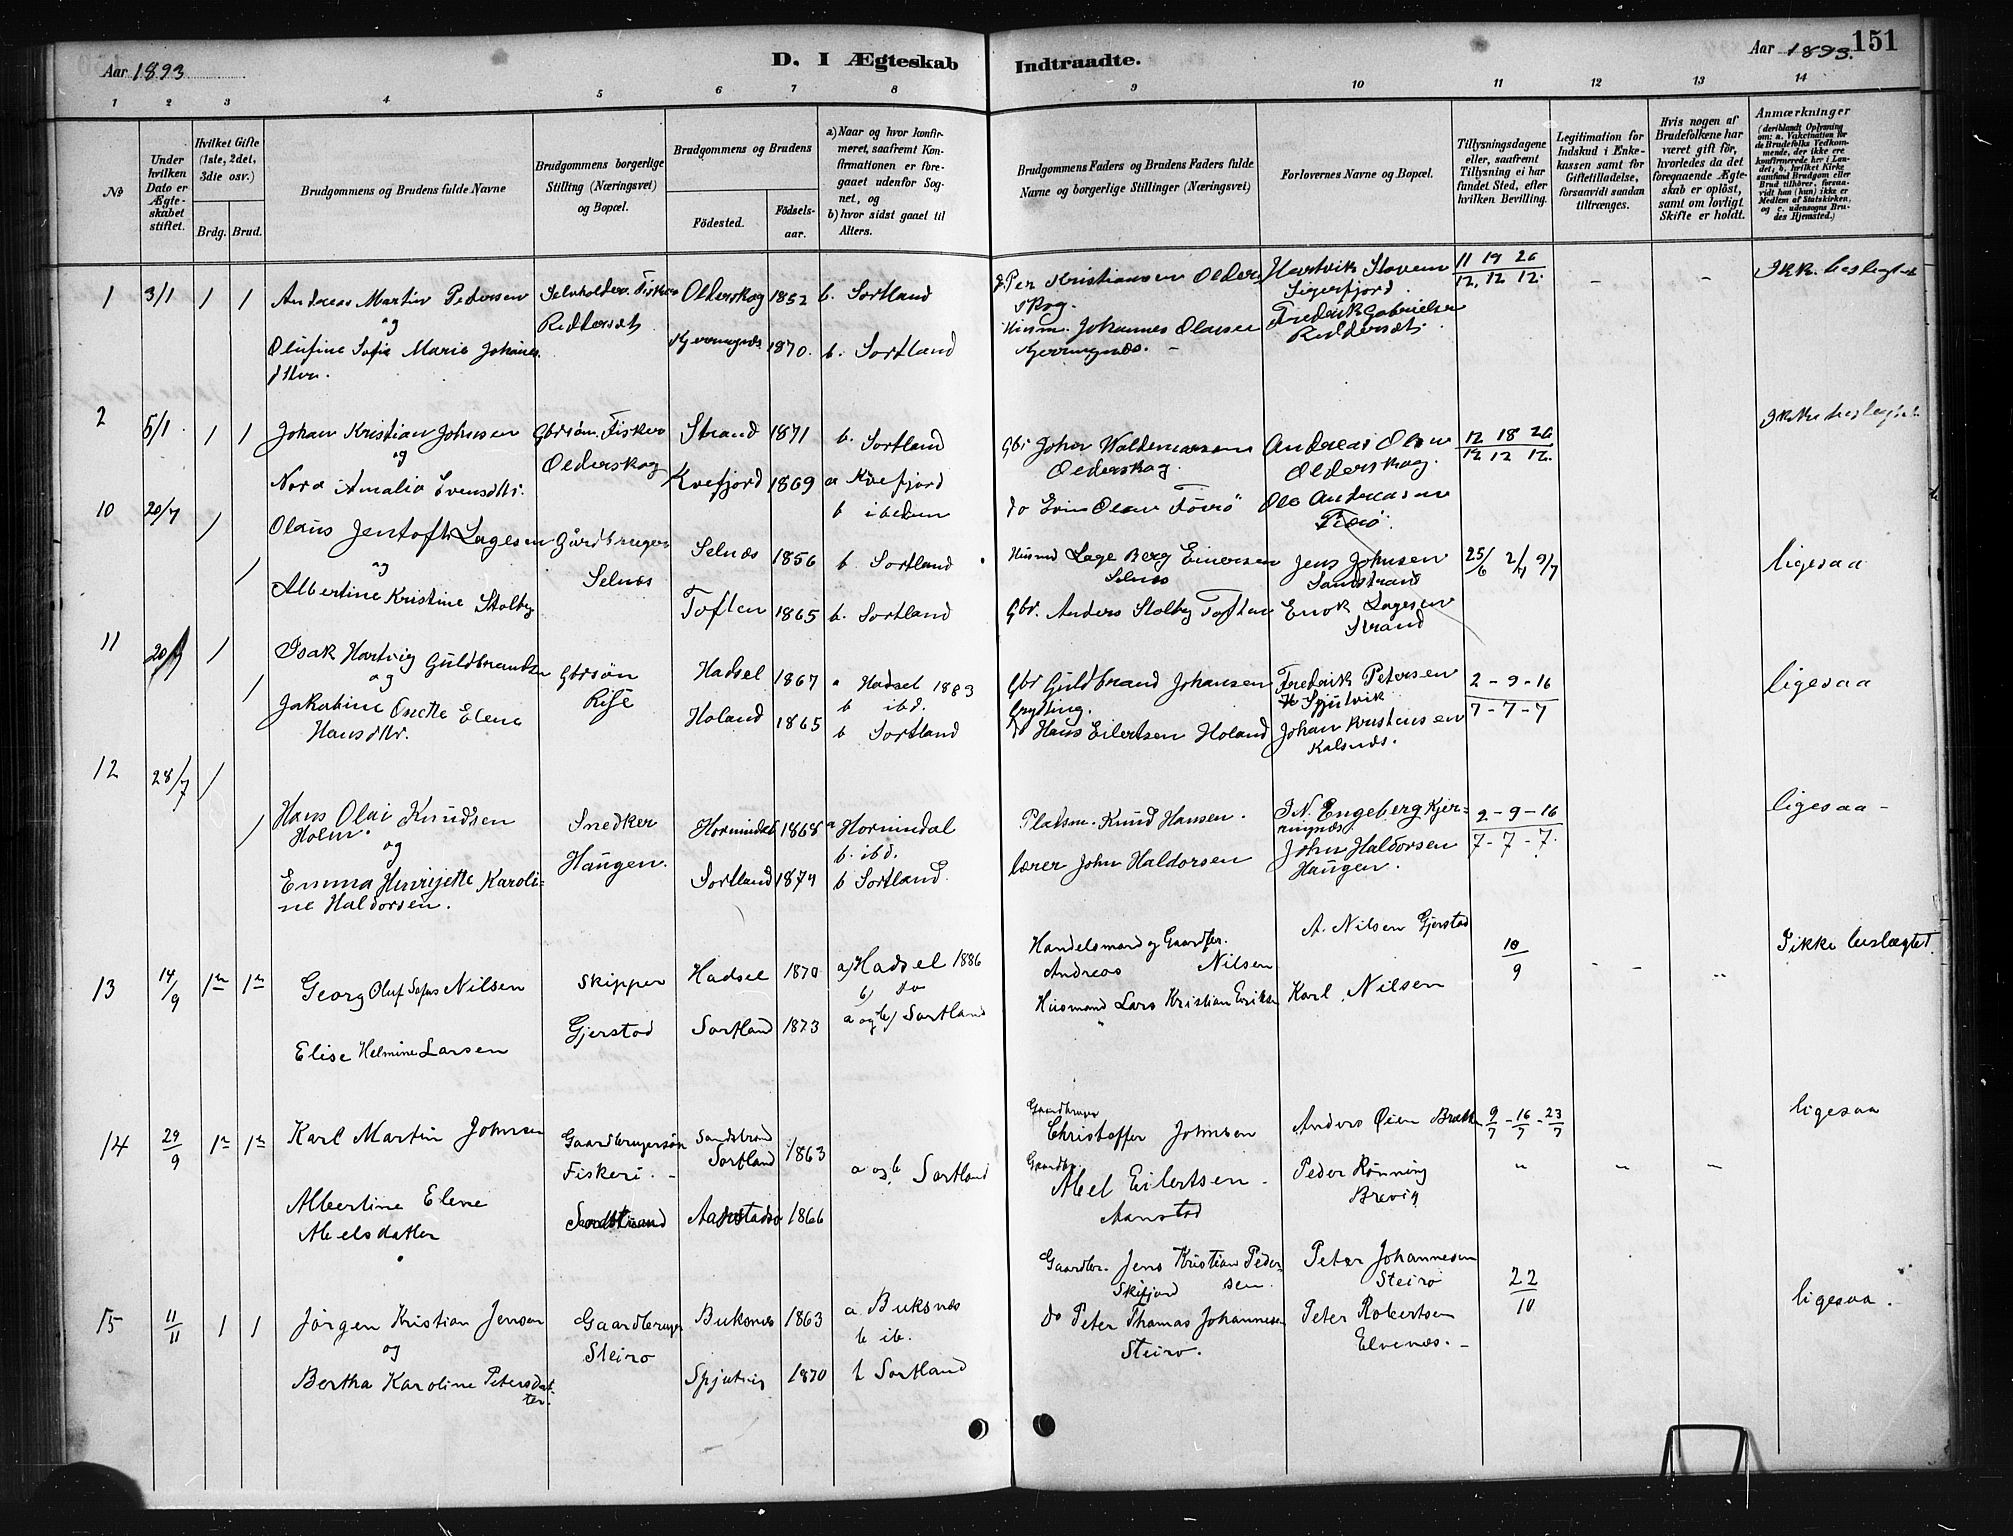 Aar 1893.
D. I Ægteskab
Indtraadte.
Aar 1893.
151
1 2 3 4 5 6 7 8 9 10 11 12 13 14
No
Under hvilken Dato er Ægteskabet stiftet.
Hvilket Gifte (1ste, 2det, 3die osv.)
Brdg.
Brud.
Brudgommens og Brudens fulde Navne
Brudgommens borgerlige Stilling (Næringsvei) og Bopæl.
Brudgommens og Brudens
Fødested.
Fødselsaar.
a) Naar og hvor konfirmeret, saafremt Konfirmationen er foregaaet udenfor Sognet, og
b) hvor sidst gaaet til Alters.
Brudgommens Faders og Brudens Faders fulde Navne og borgerlige Stillinger (Næringsvei)
Forlovernes Navne og Bopæl.
Tillysningsdagene eller, saafremt Tillysning ei har fundet Sted, efter hvilken Bevilling.
Legitimation for Indskud i Enkekassen samt for Giftetilladelse, forsaavidt saadan tiltrænges.
Hvis nogen af Brudefolkene har været gift før, hvorledes da det foregaaende Ægteskab er opløst, samt om lovligt Skifte er holdt.
Anmærkninger
(deriblandt Oplysning om: a. Vakcination for de Brudefolks Vedkommende, der ikke ere konfirmerede her i Landet, b. hvilket Kirkesamfund Brudgom eller Brud tilhører, forsaavidt han (hun) ikke er Medlem af Statskirken, og c. udensogns Brudes Hjemsted.)
1 3/1 1 1 Andreas Martin Pedersen Selvholder. Fisker Olderskog 1852 b. Sortland Per Kristiansen Olderskog. Hartvik Stovem Sigerfjord. 11 19 26 / 12. 12 12. – – Ikk. beslegtet
og Reddersæts
Olufine Sofie Marie Johannesdtter. Kjerringnæs 1870. b. Sortland Husm. Johannes Olausen Kjerringnæs. – Frederik Gabrielsen Reddersæts
2 5/1 1 1 Johan Kristian Johnsen Gbrsøn. Fisker Strand 1871 b. Sortland Gbr John Waldemarsen Olderskog. Andreas Olsen Olderskog. 12 18 26 / 12 12 12. Ikke beslegtet
og Olderskog
Nora Amalia Evensdtr. Kvefjord 1869 a Kvefjord b ibidem do Even Olsen Ole Andreasen
10 20/7 1 1 Olaus Jentoft Lagesen Gårdbruger Selnæs 1856 b. Sortland Husmd Lage Berg Einersen Selnæs Jens Johnsen Sandstrand 25/6 2/7 9/7 ligesaa
og Selnæs
Albertine Kristine Stolby Toften 1865 b. Sortland Gbr. Anders Stolby Toften Enok Lagesen Strand
11 20/7 1 1 Isak Hartvig Guldbrandsen Gbrsøn Hadsel 1867 a Hadsel 1883 b ibd. Gbr Guldbrand Johansen Frederik Petersen Spjutvik 2 – 9 – 16 / 7 – 7 – 7 ligesaa
og Rise
Jakobine Anette Elene Hansdtr. Holand 1865 b Sortland Do Hans Eilertsen Holand Johan Kristensen Kalsnæs.
12 28/7 1 1 Hans Olai Knudsen Holm. Snedker Hornindal 1868 a Hornindal b. ibd. Pladsm. Knud Hansen. I. N. Engeberg Kjerringnæs 2 – 9 – 16 / 7 – 7 – 7. ligesaa –
og Haugen.
Emma Henrijette Karoline Haldorsen. Sortland 1874 b Sortland. Lærer John Haldorsen John Haldorsen Haugen.
13 14/9 1ste 1ste Georg Oluf Sofus Nilsen Skipper Hadsel 1870 a) Hadsel 1886 b) do Handelsmand og Gaardbr. Andreas Nilsen A. Nilsen Gjerstad 10/9 – – " I ikke beslægtet.
Gjerstad
Elise Helmine Larsen Sortland 1873 a og b) Sortland Husmand Lars Kristian Eriksen Karl Nilsen
14 29/9 1ste 1ste Karl Martin Johnsen Gaardbrugersøn Sandstrand Sortland 1863 a og b. Sortland Gaardbruger Christoffer Johnsen Anders Øien Bræk 9/7 – 16/7 – 23/7 ligesaa
Fiskeri. –
Albertine Elene Abelsdatter Sandstrand Aanstad 1866 Gaardbr Abel Eilertsen – Aanstad Peder Rønning Brevig " " –
15 11/11 1 1 Jørgen Kristian Jensen Gaardbruger Buksnæs 1863 a Buksnæs b ib. Gaardbr. Jens Kristian Pedersen. Skifjord Peter Johannesen Steiro 22/10 ligesaa.
og Steiro
Bertha Karoline Petersdatter. Spjutvig 1870 b Sortland do Peter Thomas Johannesen Steiro. Peter Robertsen Elvenæs. –